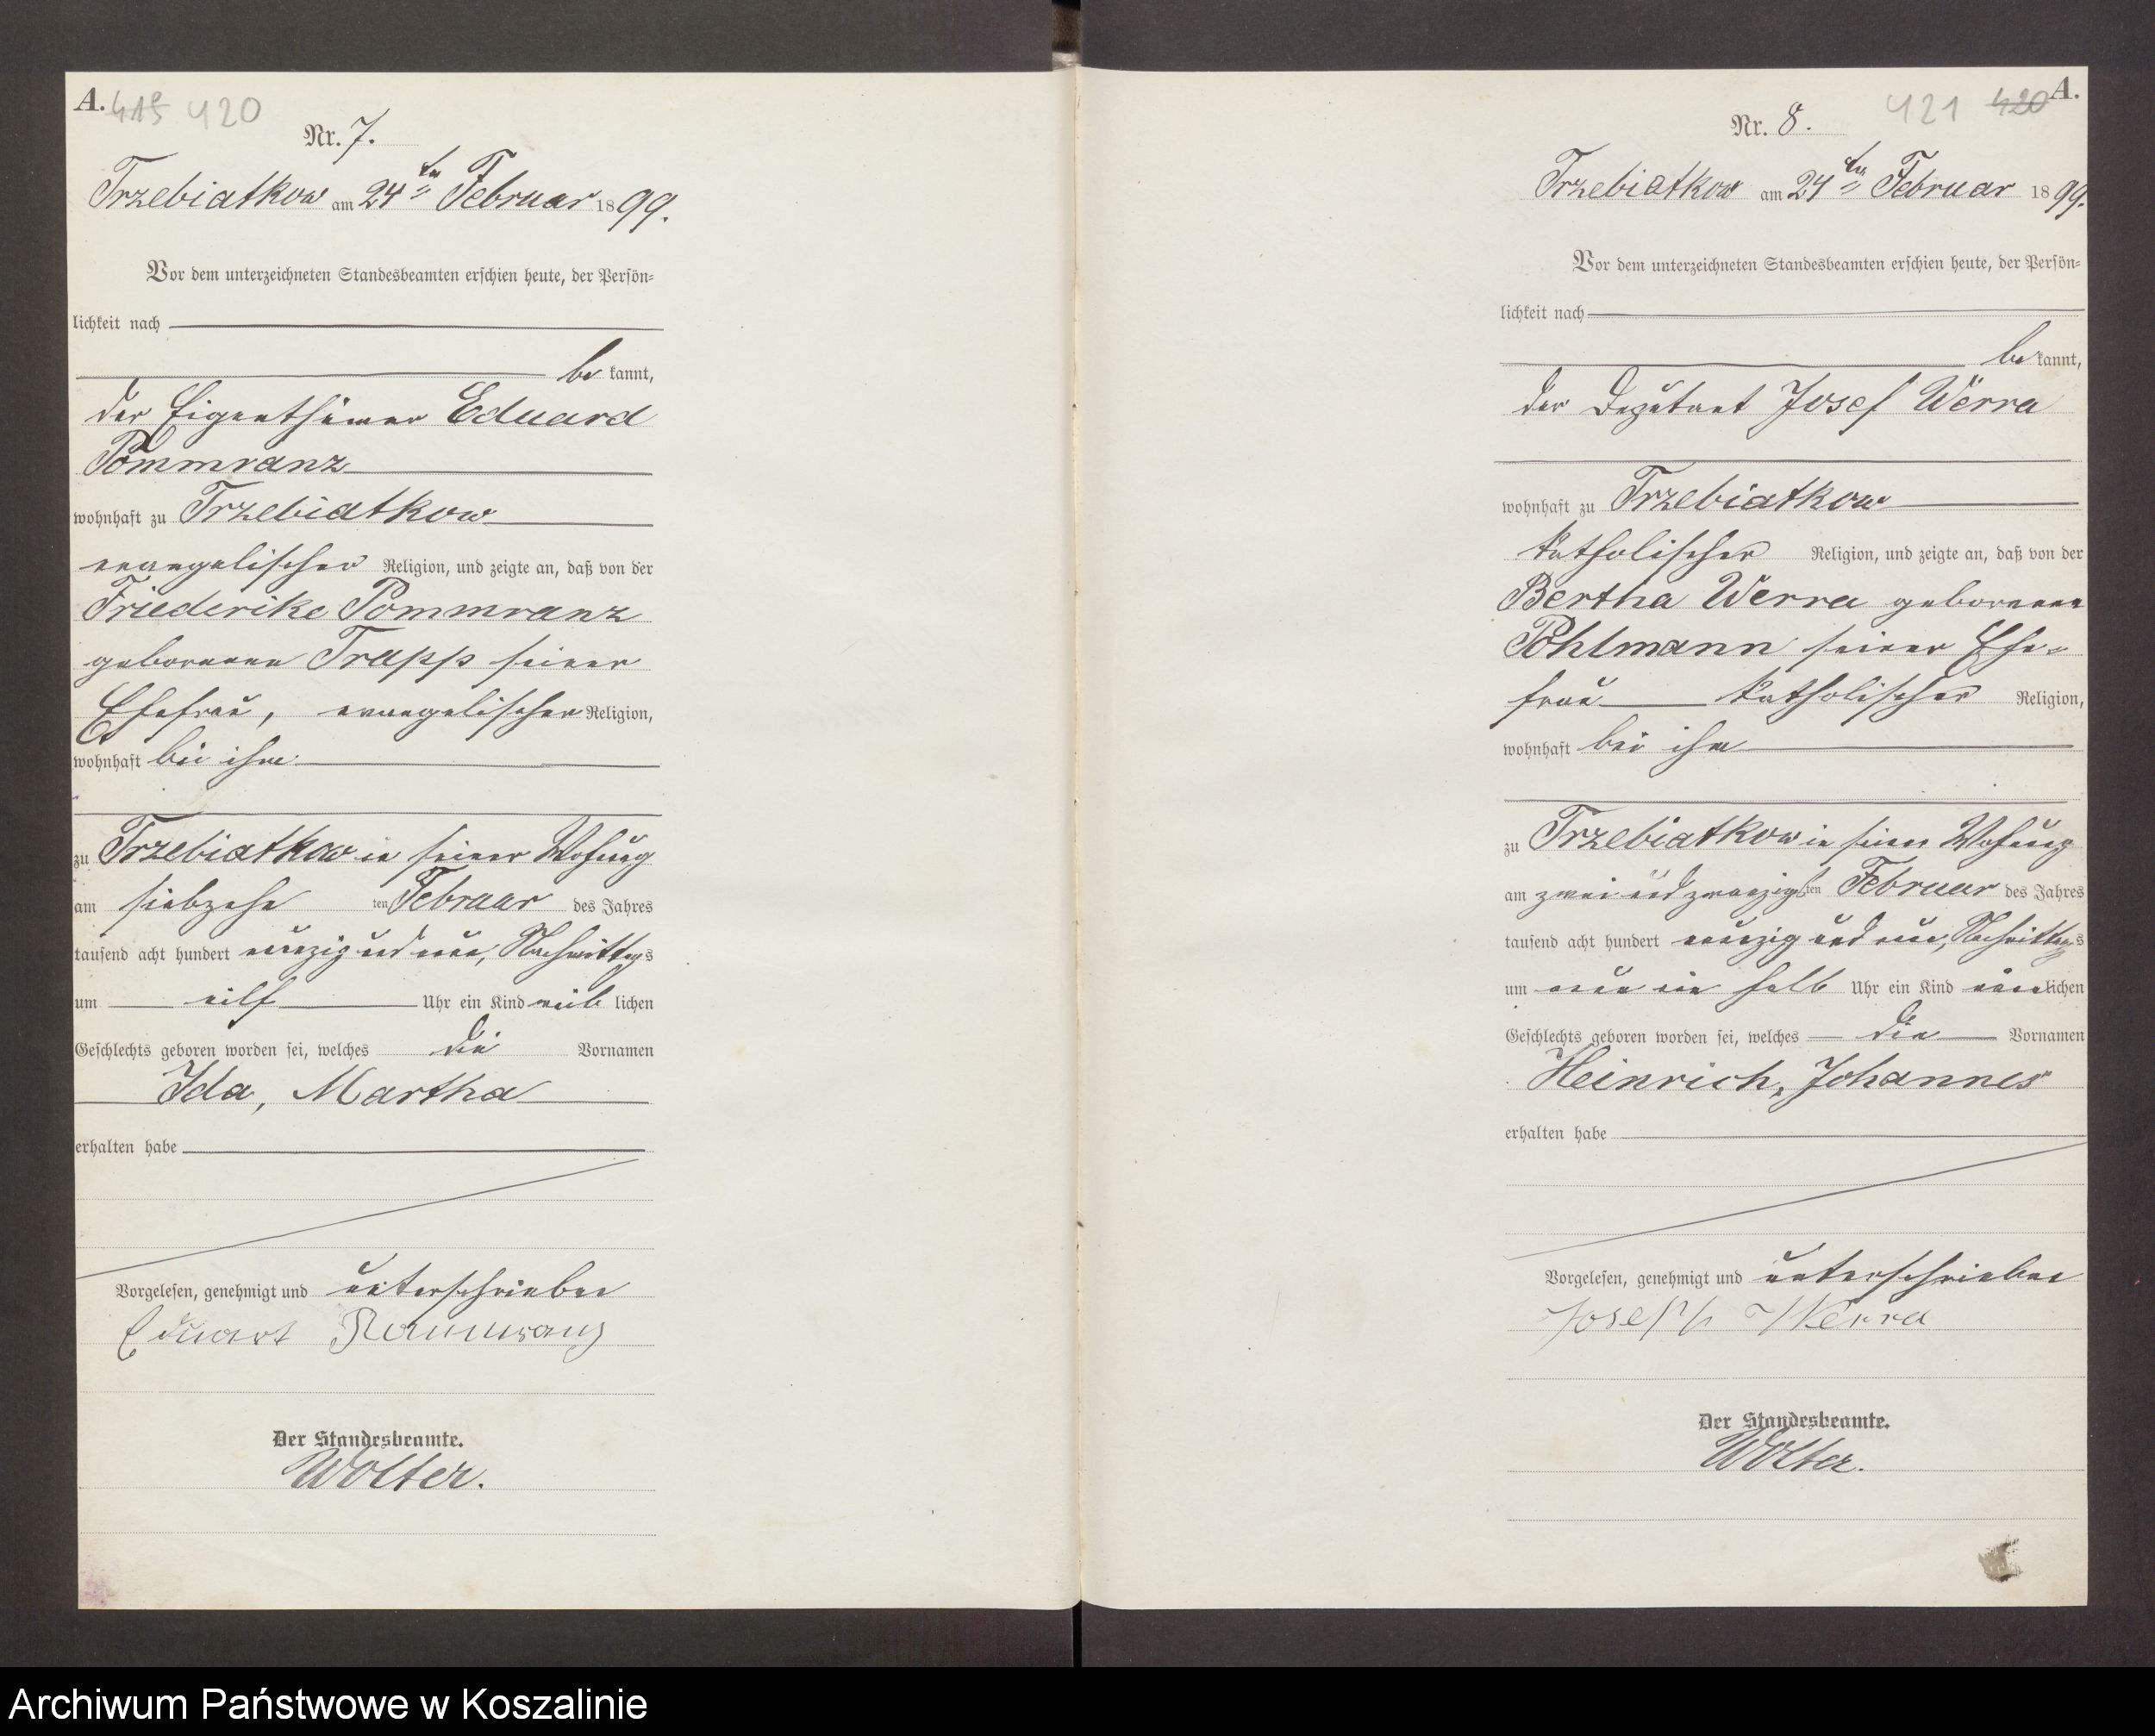 A. 419 420
Nr. 7.
Trzebiatkow am 24ten Februar 1899.
Vor dem unterzeichneten Standesbeamten erschien heute, der Persön=
lichkeit nach
be kannt,
der Eigenthümer Eduard
Pommranz
wohnhaft zu Trzebiatkow
evangelischer Religion, und zeigte an, daß von der
Friederike Pommranz
geborenen Trapp seiner
Ehefrau, evangelischer Religion,
wohnhaft bei ihm
zu Trzebiatkow in seiner Wohung
am siebzehn ten Februar des Jahres
tausend acht hundert neunzig und neun, Nachmittags
um eilf Uhr ein Kind weib lichen
Geschlechts geboren worden sei, welches die Vornamen
Ida, Martha
erhalten habe
Vorgelesen, genehmigt und unterschrieben
Eduart Pommranz
Der Standesbeamte.
Wolter.
421 420 A.
Nr. 8.
Trzebiatkow am 24ten Februar 1899.
Vor dem unterzeichneten Standesbeamten erschien heute, der Persön=
lichkeit nach
be kannt,
der Deputant Josef Werra
wohnhaft zu Trzebiatkow
katholischer Religion, und zeigte an, daß von der
Bertha Werra geborenen
Pohlmann seiner Ehe=
frau katholischer Religion,
wohnhaft bei ihm
zu Trzebiatkow in seiner Wohung
am zwei und zwanzigsten Februar des Jahres
tausend acht hundert neunzig und neun, Nachmittags
um neun ein halb Uhr ein Kind männlichen
Geschlechts geboren worden sei, welches die Vornamen
Heinrich, Johannes
erhalten habe
Vorgelesen, genehmigt und unterschrieben
Joseph Werra
Der Standesbeamte.
Wolter.
Archiwum Państwowe w Koszalinie